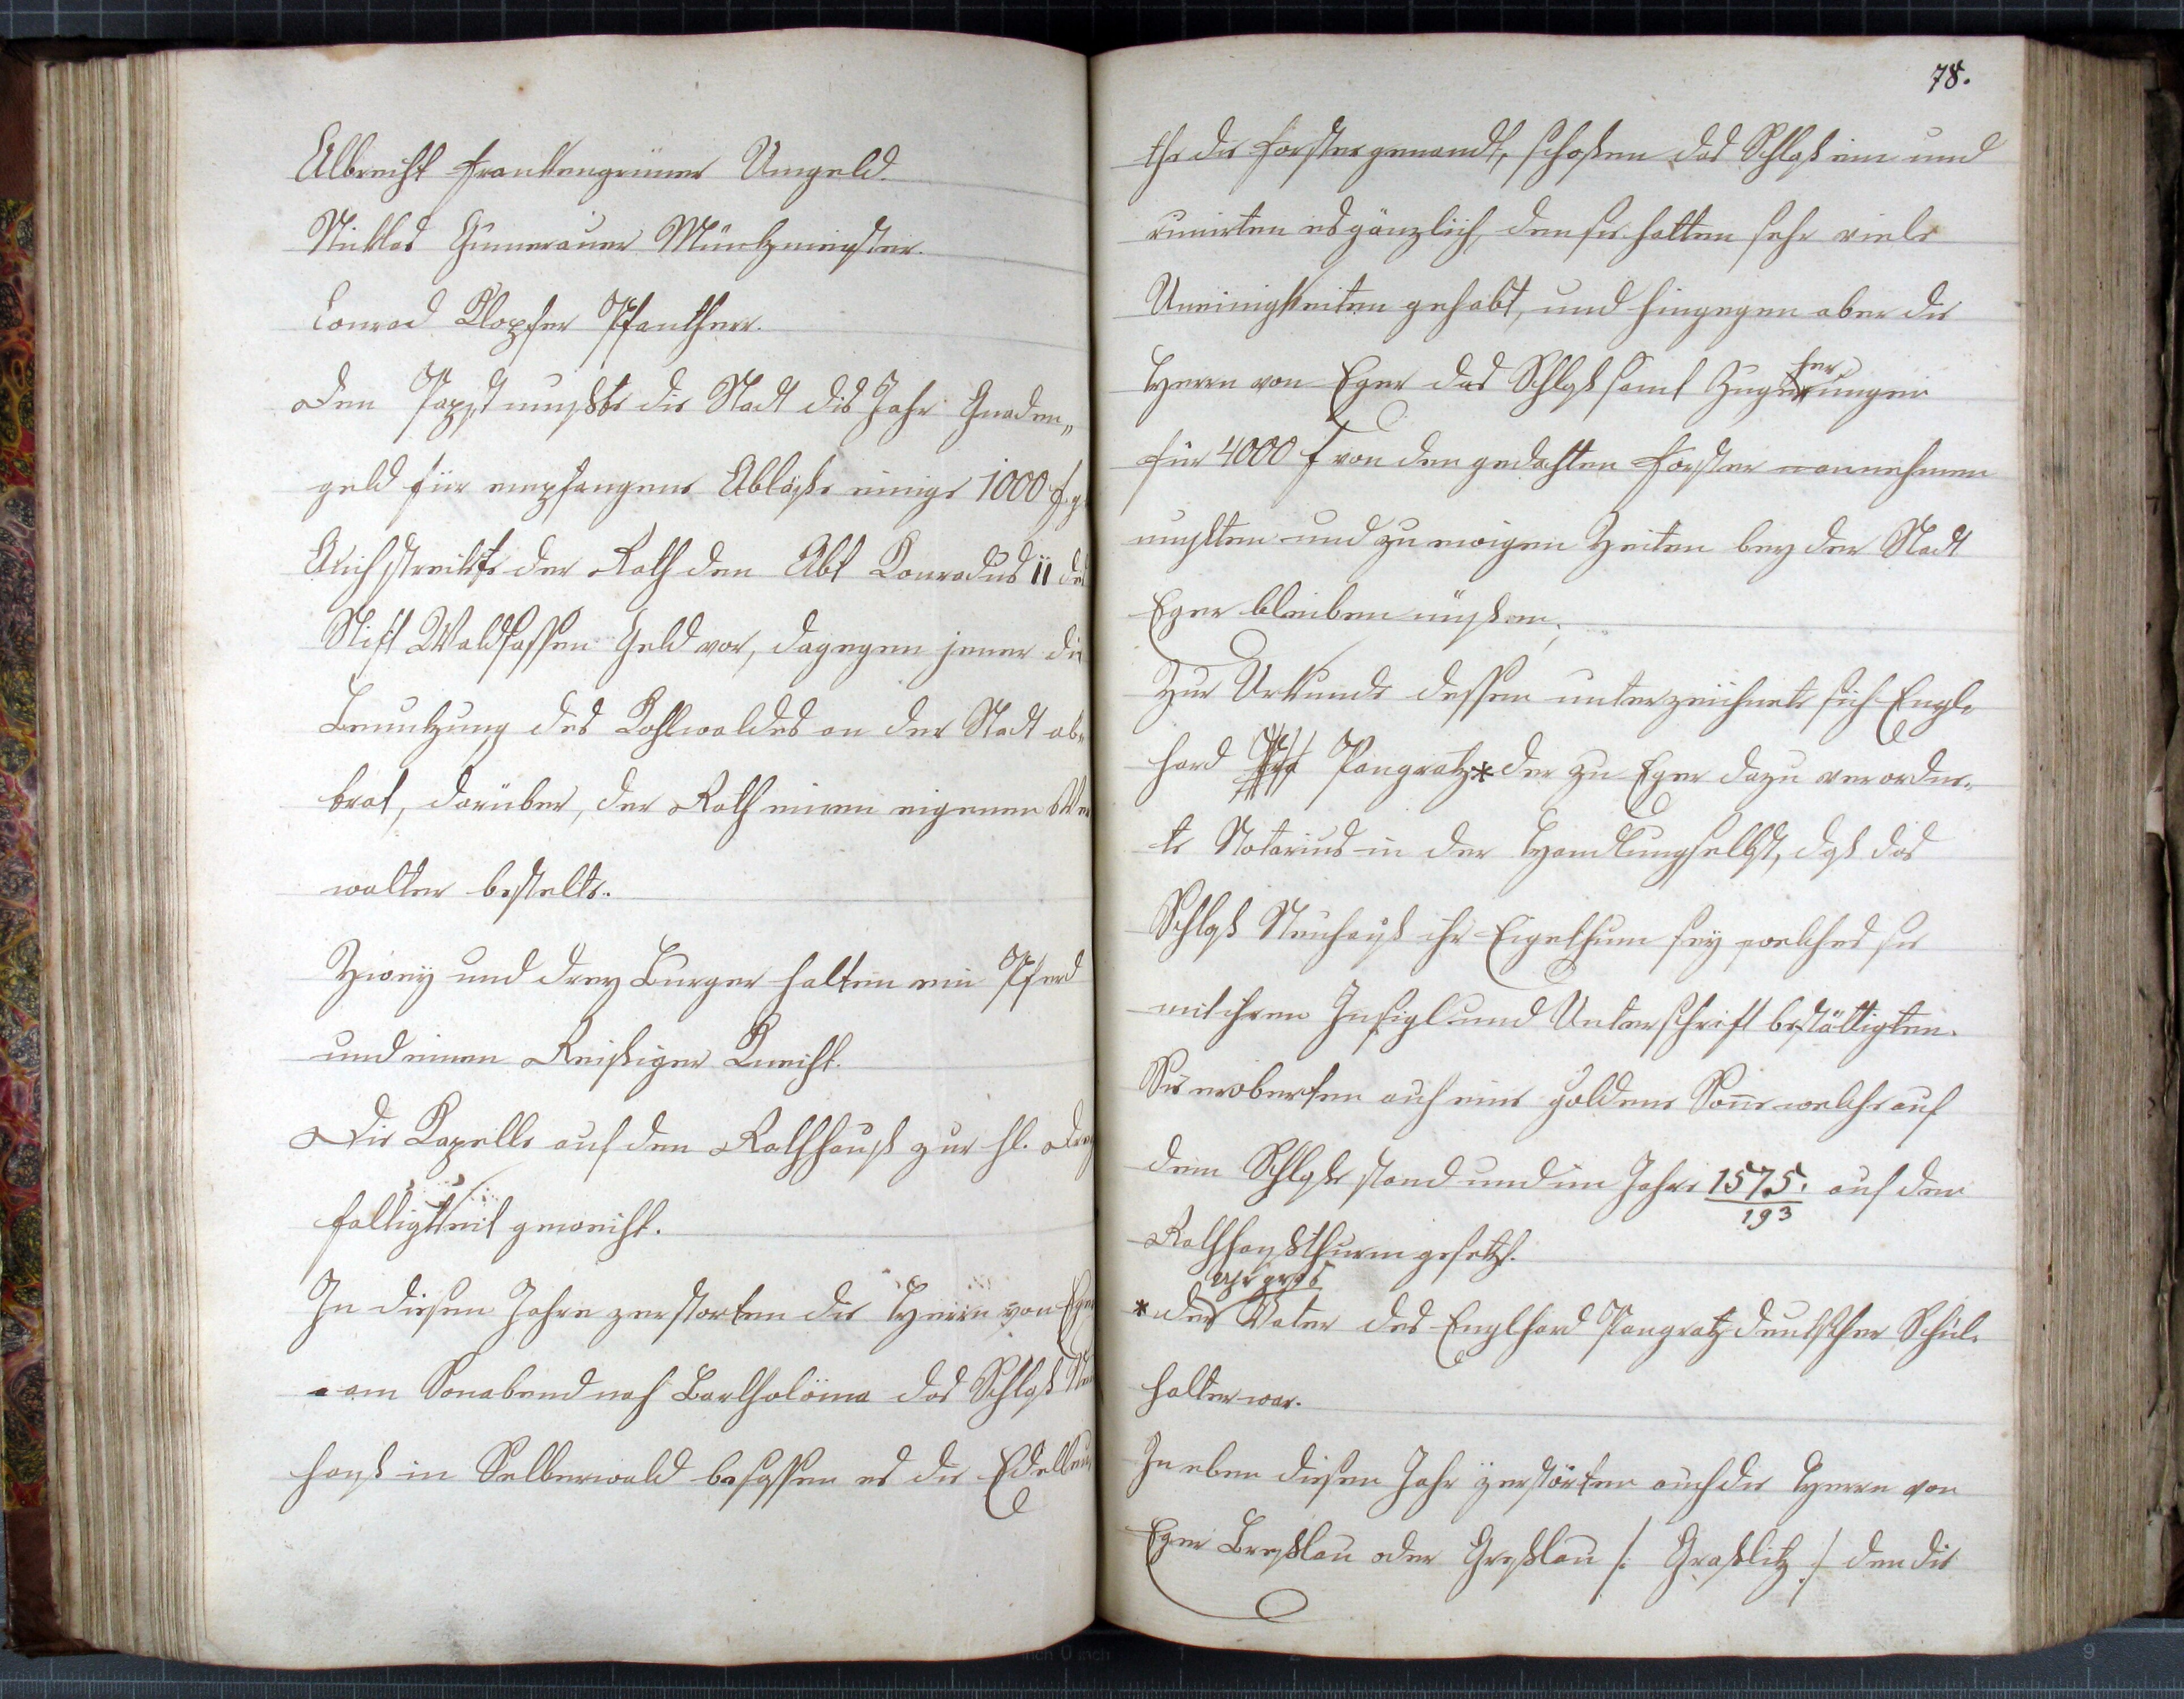 Albrecht Frankengrüner Umgeld.
Niklas Gumerauer Müntzmeister.
Conrad Klopfer Pfantherr.
Den Papst mußte die Stadt dis Jahr Gnaden„
geld für empfangene Abläße einige 1000 f.
Auch streckte der Rath den Abt Konradus II des
Stift Waldsassen Geld vor, dagegen jener die
Benutzung des Kohlwaldes an der Stadt ab-
trat, darüber, der Rath einen eigenen Ver
walter bestelte.
Zwey und drey Burger halten ein Pferd
und einen Reißigen Knecht.
Die Kapelle auf den Rathhauß zur hl. Drey
faltigkeit geweiht.
In diesen Jahre zerstorten die Herrn von Eger
am Sonabend nach Bartholöma das Schloß Neu
hauß in Selberwald besassen es die Edelleu
78.
the die Forster genandt, schoßen das Schloß ein und
ruinirten es gänzlich, den sie hatten sehr viele
Uneinigkeiten gehabt, und hingegen aber die
Herrn von Eger das Schloß samt Zugehörungen
für 4000 f von den gedachten Forster annehmen
mußten und zu ewigen Zeiten bey der Stadt
Eger bleiben müßen.
Zur Urkunde dessen unterzeichnete sich Engl-
hard Pangratz * der zu Eger dazu verordne-
te Notarius in der Handlung selbst, daß das
Schloß Neuhauß ihr Eigethum sey welches sie
mit ihren Insigl und Unterschrift bestättigten.
Sie eroberten auch eine goldene Sonne welche auf
dem Schloße stand und im Jahre 1575. auf den
193
Rathhaußthurm gesetzt.
* der Vater des Englhard Pangratz deutscher Schul-
halter war.
In eben diesen Jahr zerstörten auch die Herrn von
Eger Breßlau oder Greßlau /: Graßlitz :/ den die